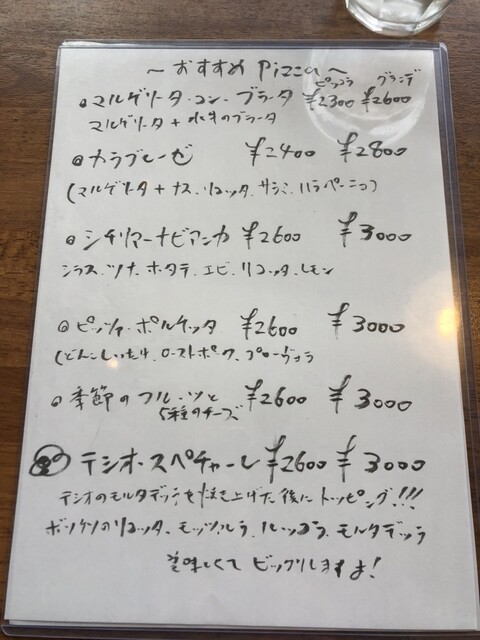 ～おすすめ Pizza～
ピッコラ グランデ
・マルゲリータ・コン・ブラータ ¥2300 ¥2600
マルゲリータ+水牛のブラータ
・カラブレーゼ ¥2400 ¥2800
(マルゲリータ+ナス、リコッタ、サラミ、ハラペーニョ)
・シチリアーナビアンカ ¥2600 ¥3000
シラス、ツナ、ホタテ、エビ、リコッタ、レモン
・ピッツァ・ポルケッタ ¥2600 ¥3000
(どんこしいたけ、ローストポーク、プローヴォラ
・季節のフルーツと ¥2600 ¥3000
5種のチーズ
テシオ・スペチャーレ ¥2600 ¥3000
テシオのモルタデッラを焼き上げた後にトッピング!!!
のリコッタ、モッツァレラ、ルッコラ、モルタデッラ
美味しくてビックリしますよ!